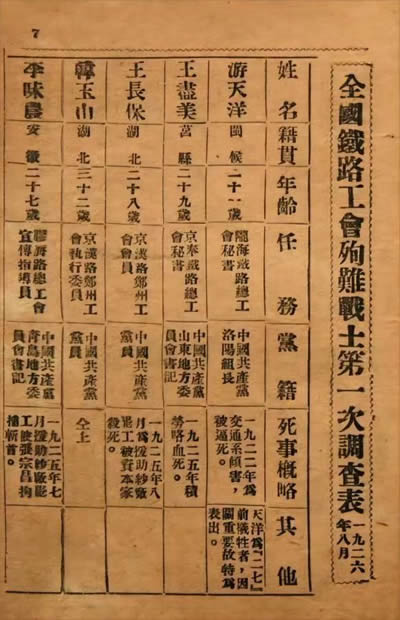 7
全國鐵路工會殉難戰士第一次調查表
一九二六
年八月
姓名
籍貫
年齡
任務
黨籍
死事概略
其他
游天洋
閩候
二十一歲
隴海鐵路總工
會秘書
中國共產黨
洛陽組長
一九二二年爲
交通系傾害，
被逼死。
天洋爲『二七』
前犧牲者，因
關重要故特爲
表出。
王盡美
莒縣
二十九歲
京奉鐵路總工
會秘書
中國共產黨
山東地方委
員會書記
一九二五年積
勞咯血死。
王長保
湖北
二十八歲
京漢路鄭州工
會會員
中國共產黨
黨員
一九二五年八
月爲援助紗廠
罷工被資本家
殺死。
韓玉山
湖北
三十二歲
京漢路鄭州工
會執行委員
中國共產黨
黨員
仝上
李味農
安徽
二十七歲
膠濟路總工會
宣傳指導員
中國共產黨
青島地方委
員會書記
一九二五年七
月援助紗廠罷
工被張宗昌拘
捕斬首。